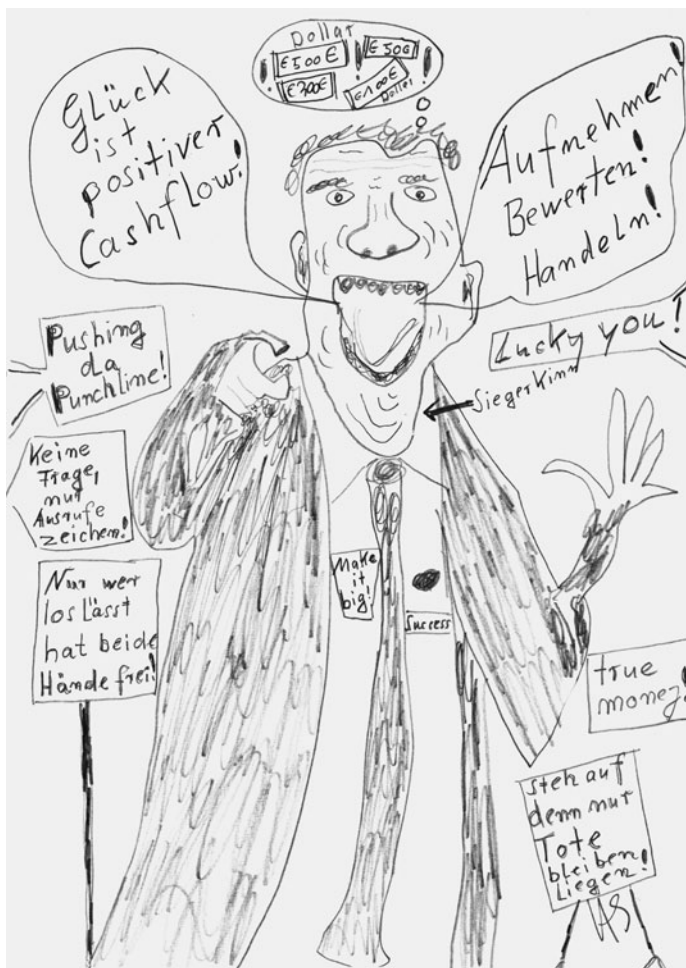 Dollar
! €500€ ! €50€
€200€ €100€ !
Dollar
Glück
ist
positiver
Cashflow!
Aufnehmen!
Bewerten!
Handeln!
Pushing
da
Punchline!
Lucky you!
Siegerkinn
Keine
Frage,
nur
Ausrufe
zeichen!
Make
it
big!
Success
Nur wer
los Lässt
hat beide
Hände frei!
true
money!
steh auf
denn nur
Tote
bleiben
Liegen!
AS